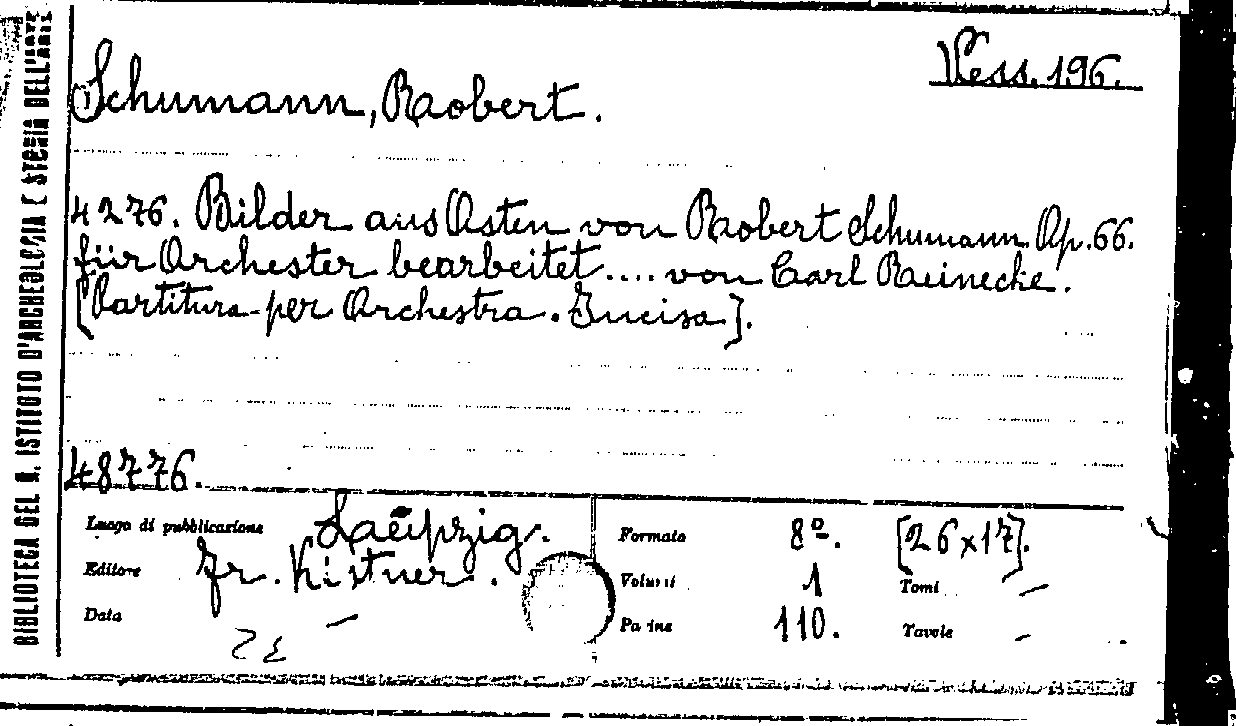 BIBLIOTECA DEL R. ISTITUTO D'ARCHEOLOGIA E STORIA DELL'ARTE
Vess. 196.
Schumann, Robert.
4276. Bilder aus Osten von Robert Schumann Op. 66.
für Orchester bearbeitet .... von Carl Reinecke.
[Partitura per Orchestra. Incisa].
48776.
Luogo di pubblicazione Leipzig.
Editore Fr. Kistner.
Data —
Formato 8º. [26x17].
Volumi 1 Tomi —
Pagine 110. Tavole -